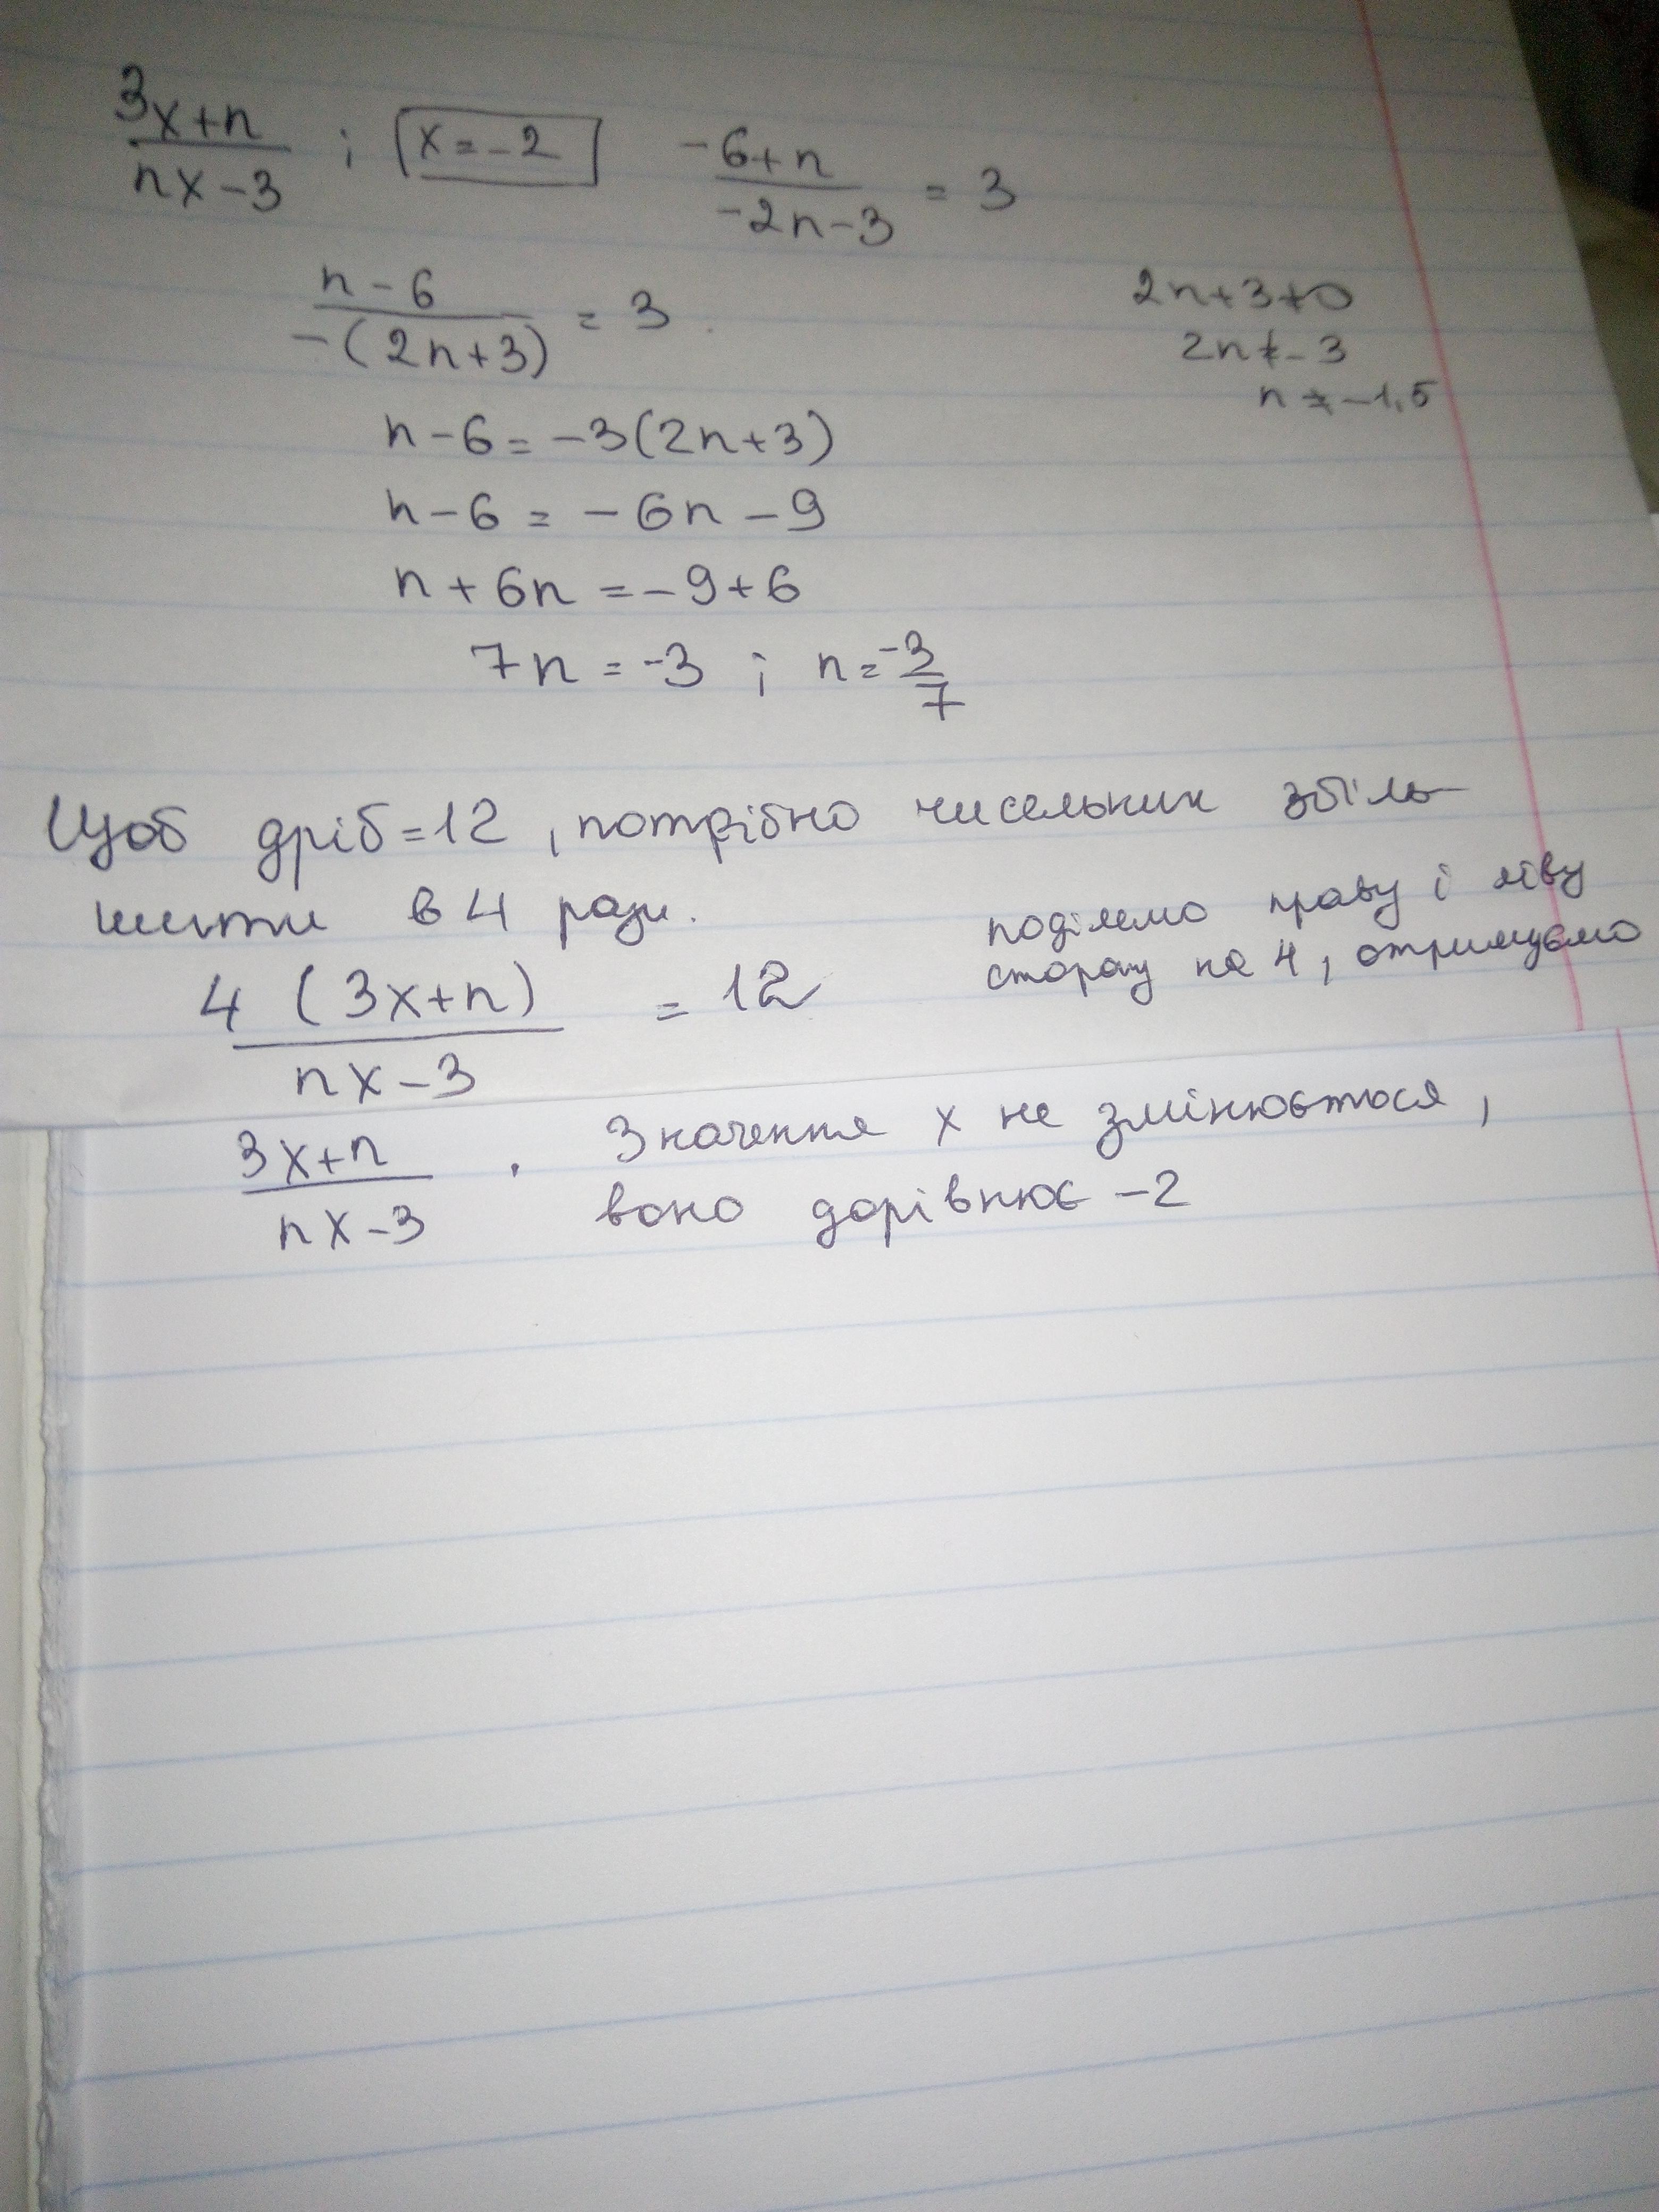 3x+n / nx-3 ; x=-2  -6+n / -2n-3 = 3
n-6 / -(2n+3) = 3
2n+3≠0
2n≠-3
n≠-1,5
n-6=-3(2n+3)
n-6=-6n-9
n+6n=-9+6
7n=-3 ; n=-3/7
Щоб дріб=12, потрібно чисельник збіль-
шити в 4 рази.
4(3x+n) / nx-3 = 12
поділемо праву і ліву
сторону на 4, отримуємо
3x+n / nx-3 . Значення x не змінюється,
воно дорівнює -2